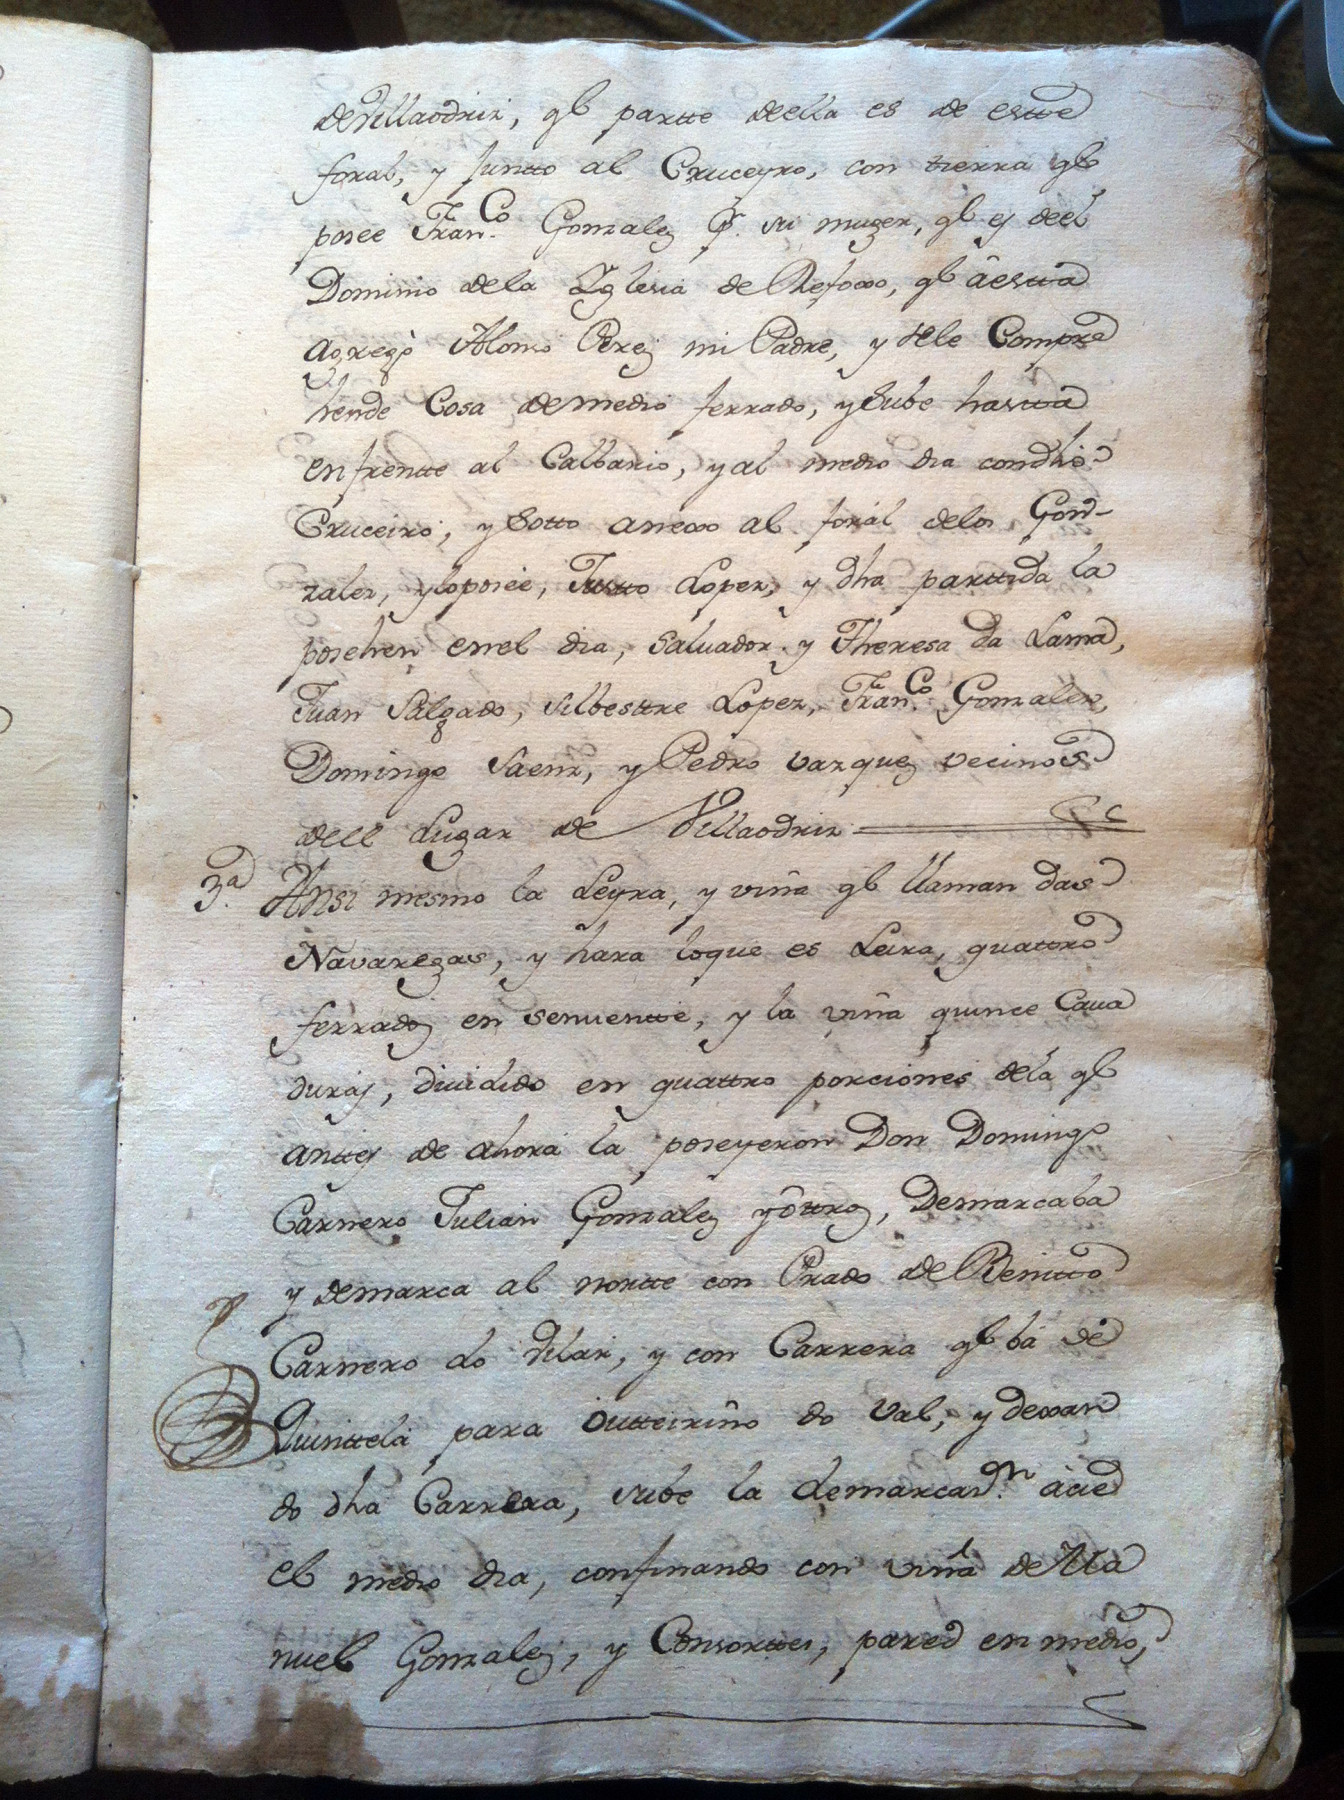 de Villaodriz, q.e partte de ella es de estte
foral, y Juntto al Cruceyro, con tierra q.e
posee Fran.co Gonzalez P.r su muger, q.e es de el
Dominio de la Yglesia de Refoxo, q.e â estta
agregò Alonso Perez mi Padre, y se le Compre
hende Cosa de medio ferrado, y Sube hastta
enfrentte al Calbario, y al medio dia con dho
Cruceiro, y Sotto anexo al foral de los Gon-
zalez, y lo posee, Justto Lopez, y dha parttida la
posehen en el dia, Salvador y Theresa da Lama,
Juan Salgado, Silbesttre Lopez, Fran.co Gonzalez,
Domingo Saenz, y Pedro Vazquez vecinos
de el Lugar de Villaodriz
3.a Ansi mesmo la Leyra, y viña q.e llaman das
Navaregas, y hara lo que es Leira, quattro
ferrados en semientte, y la viña quince Cava
duras, dividido en quattro porciones de la q.e
anttes de ahora la poseyeron Don Domingo
Carnero Julian Gonzalez y ôttros, Demarcaba
y demarca al nortte con Prado de Benitto
Carnero do Vilar, y con Carrera q.e bá de
Quinttela para Outteiriño do Val, y dexan
do dha Carrera, sube la demarcaz.on àcia
el medio dia, confinando con viña de Ma
nuel Gonzalez, y Consorttes, pared en medio,